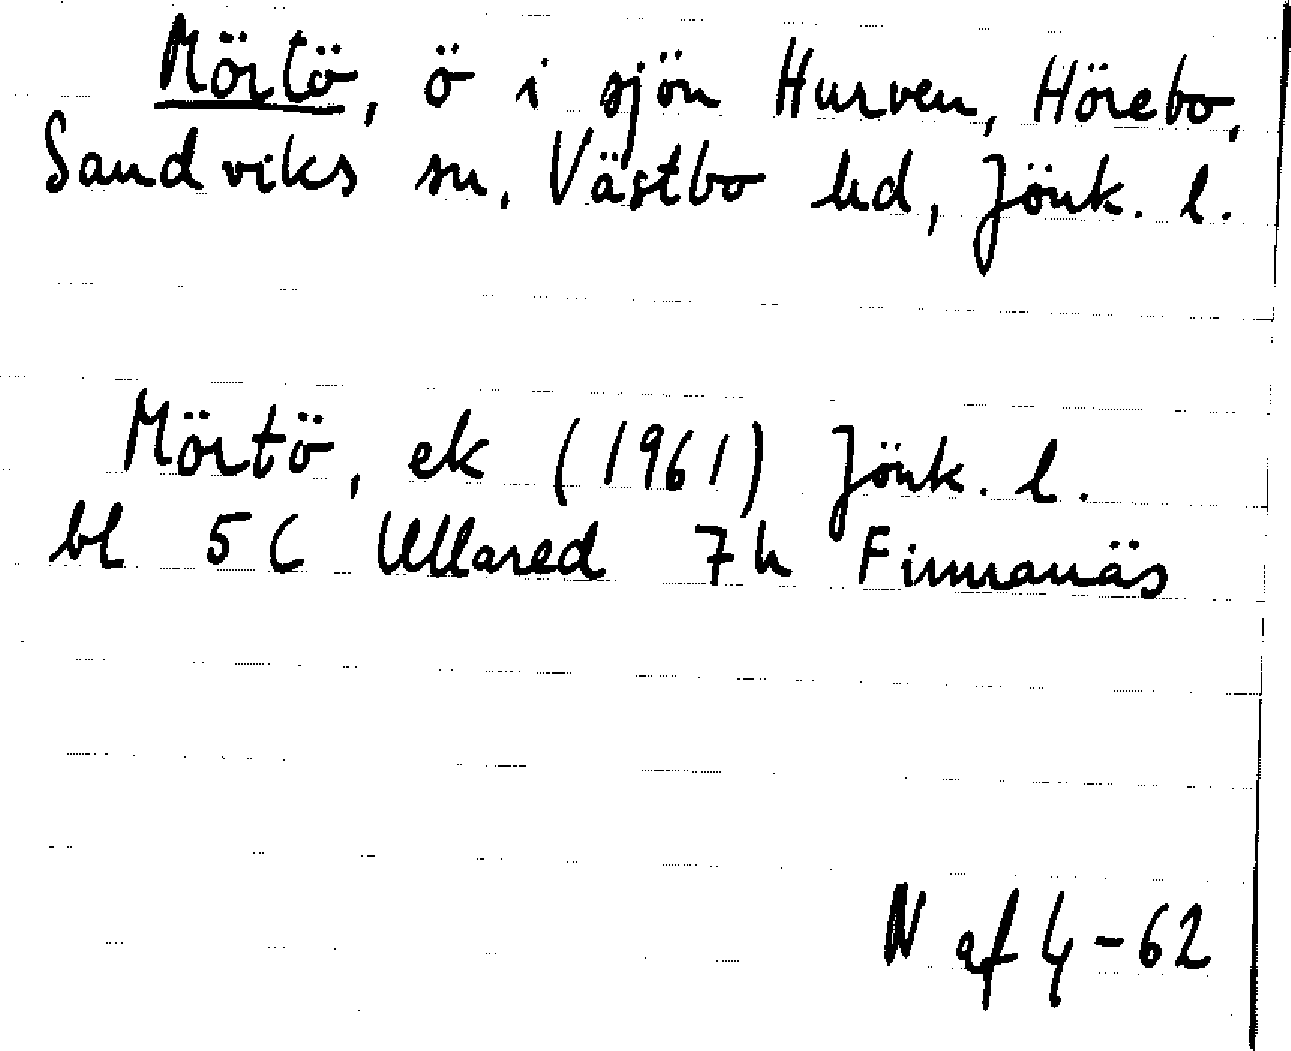 Mörtö, ö i sjön Hurven, Hörebo,
Sandviks sn, Västbo hd, Jönk. l.
Mörtö, ek (1961) Jönk. l.
bl 5C Ullared 7h Finnanäs
N af 4-62